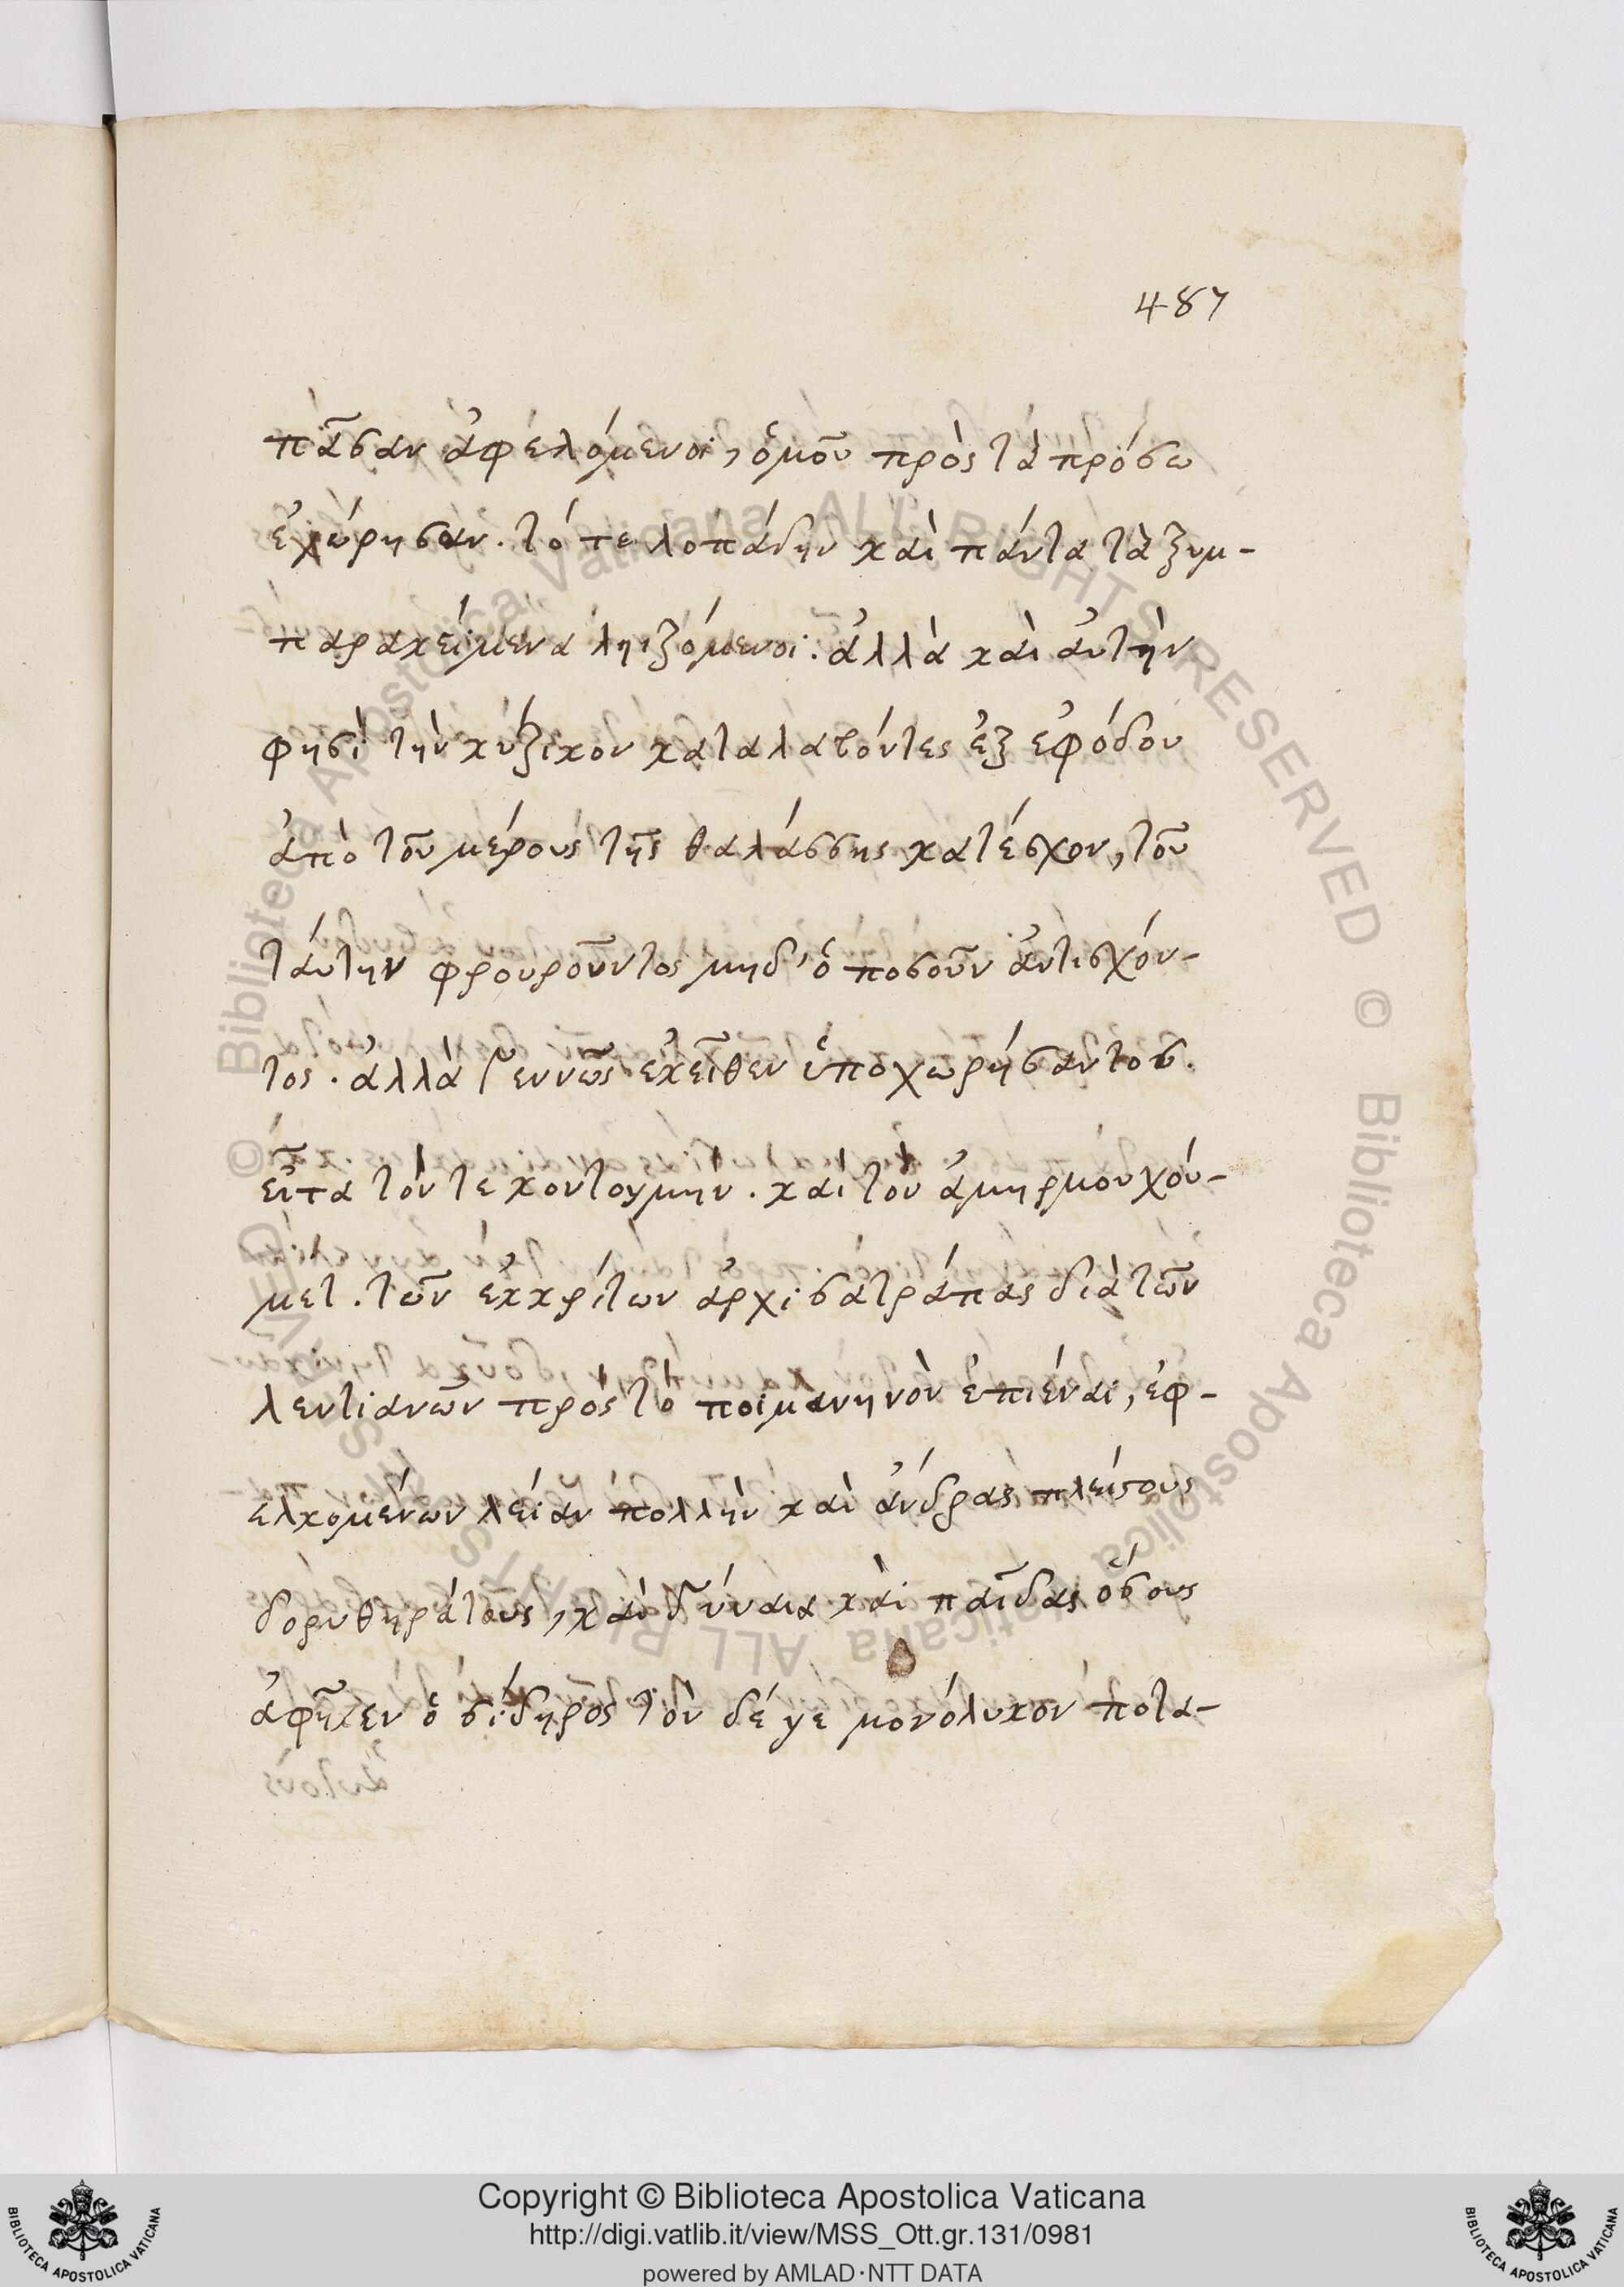 487
πᾶσαν ἀφελόμενοι, ὁμοῦ πρὸς τὰ πρόσω
ἐχώρησαν. τό τε λοπάδην καὶ πάντα τὰ ξυμ-
παρακείμενα ληιζόμενοι. ἀλλὰ καὶ αὐτὴν
φησὶ τὴν κύζικον καταλαβόντες ἐξ ἐφόδου
ἀπὸ τοῦ μέρους τῆς θαλάσσης κατέσχον, τοῦ
ταύτην φρουροῦντος μηδ' ὁποσοῦν ἀντισχόν-
τος. ἀλλὰ γεννῶς ἐκεῖθεν ὑποχωρήσαντος.
εἶτα τόν τε κοντογμὴν. καὶ τὸν ἀμηρμουχού-
μετ. τῶν ἐκκρίτων ἀρχισατράπας διὰ τῶν
λεντιανῶν πρὸς τὸ ποιμανηνὸν ἐπιέναι, ἐφ-
ελκομένων λείαν πολλὴν καὶ ἄνδρας πλείστους
δορυθηράτους, καὶ γύναια καὶ παῖδας ὅσους
ἀφῆκεν ὁ σίδηρος τὸν δέ γε μονόλυκον ποτα-
Copyright © Biblioteca Apostolica Vaticana
http://digi.vatlib.it/view/MSS_Ott.gr.131/0981
powered by AMLAD·NTT DATA
BIBLIOTECA APOSTOLICA VATICANA
BIBLIOTECA APOSTOLICA VATICANA
© Biblioteca Apostolica Vaticana ALL RIGHTS RESERVED © Biblioteca Apostolica Vaticana ALL RIGHTS RESERVED